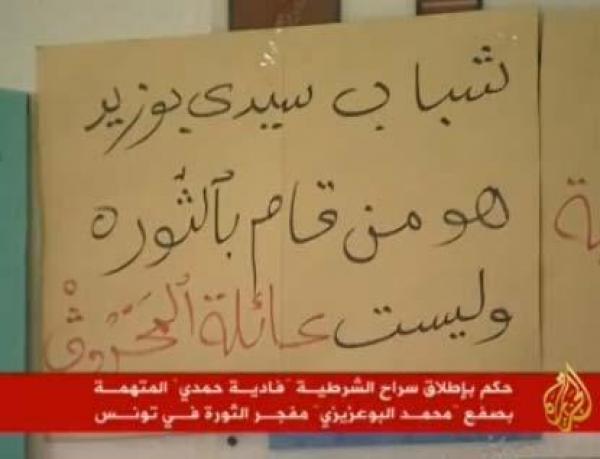 شباب سيدي بوزيد
هو من قام بالثوره
وليست عائلة المحروڨ
ية
حكم بإطلاق سراح الشرطية "فادية حمدي" المتهمة
بصفع "محمد البوعزيزي" مفجر الثورة في تونس
الجزيرة